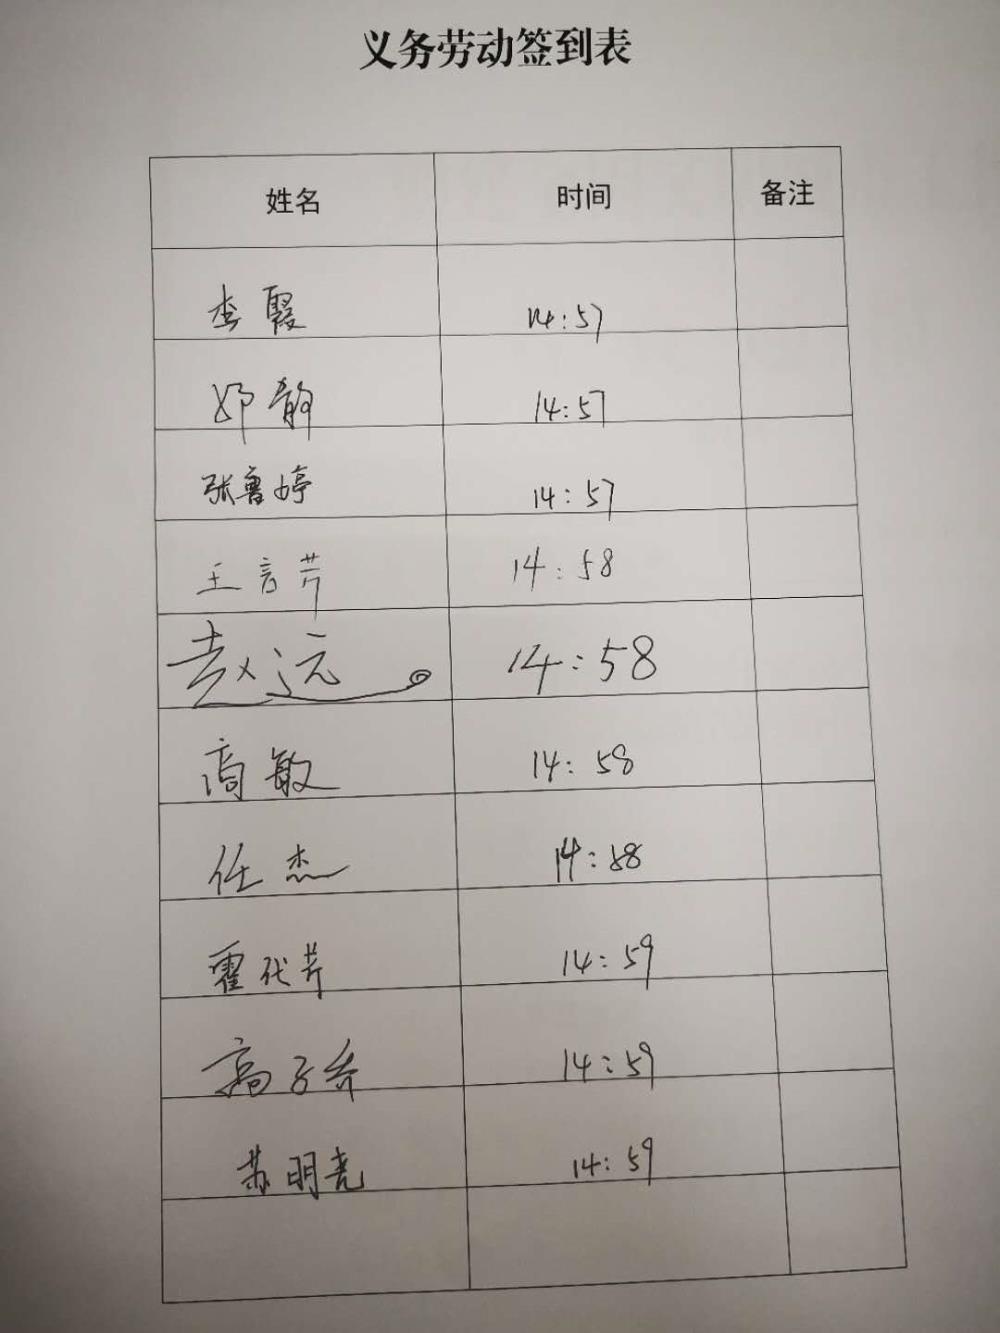 义务劳动签到表
姓名 时间 备注
李霞 14:57
邓静 14:57
张鲁婷 14:57
王言芹 14:58
赵远 14:58
高敏 14:58
任杰 14:58
霍代芹 14:59
高子乔 14:59
苏明亮 14:59